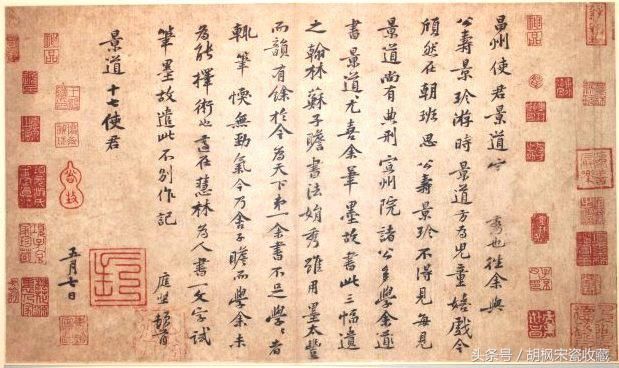 昌州使君景道宗秀也往余與
公壽景珍游時景道方為兒童嬉戲今
頎然在朝班思公壽景珍不得見每見
景道尚有典刑宣州院諸公多學余
書景道尤喜余筆墨故書此三幅遺
之翰林蘇子瞻書法娟秀雖用墨太豐
而韻有餘於今為天下第一余書不足學〻者
輒筆愞無勁氣今乃舍子瞻而學余未
為能擇術也適在慧林為人書一文字試
筆墨故遣此不別作記
庭堅頓首
景道十七使君
五月七日
头条号 / 胡枫宋瓷收藏